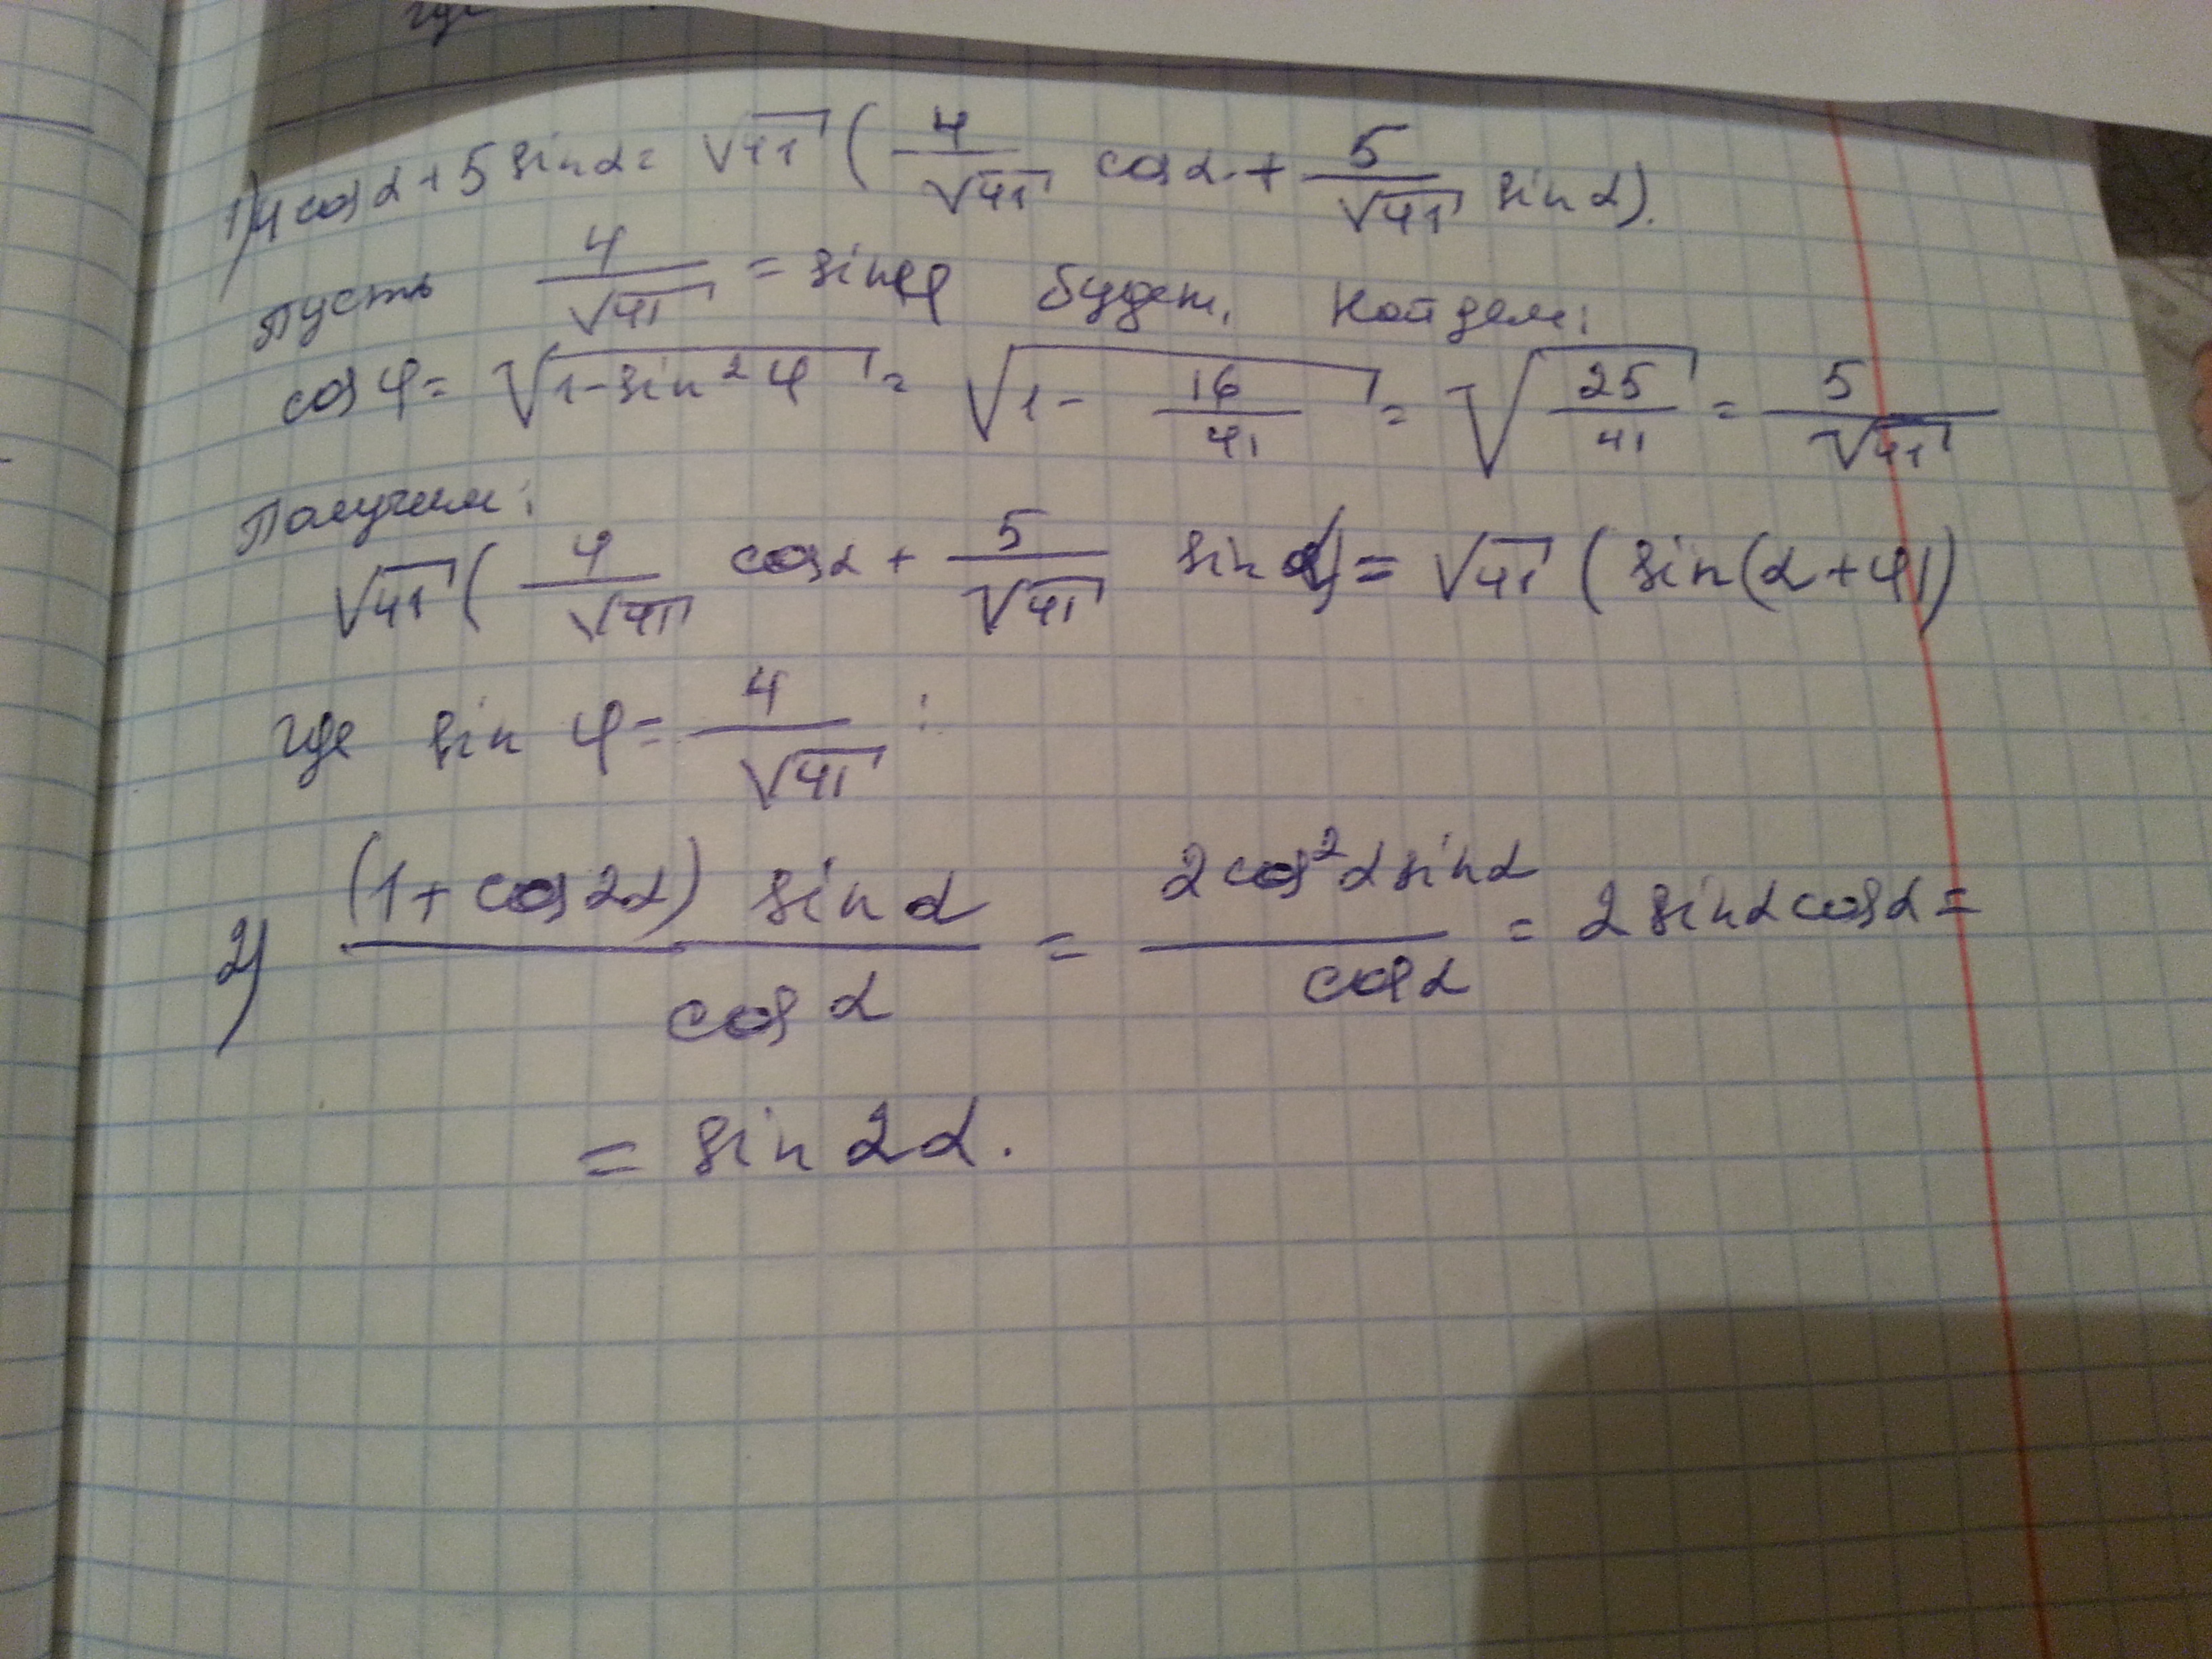 где
1) 4 cos α + 5 sin α = √41 ( 4/√41 cos α + 5/√41 sin α).
Пусть 4/√41 = sin φ будет. Найдем:
cos φ = √(1 - sin² φ) = √(1 - 16/41) = √(25/41) = 5/√41
Получим:
√41 ( 4/√41 cos α + 5/√41 sin α) = √41 ( sin(α + φ)
где sin φ = 4/√41 :
2) (1 + cos 2α) sin α / cos α = 2 cos² α sin α / cos α = 2 sin α cos α =
= sin 2α.